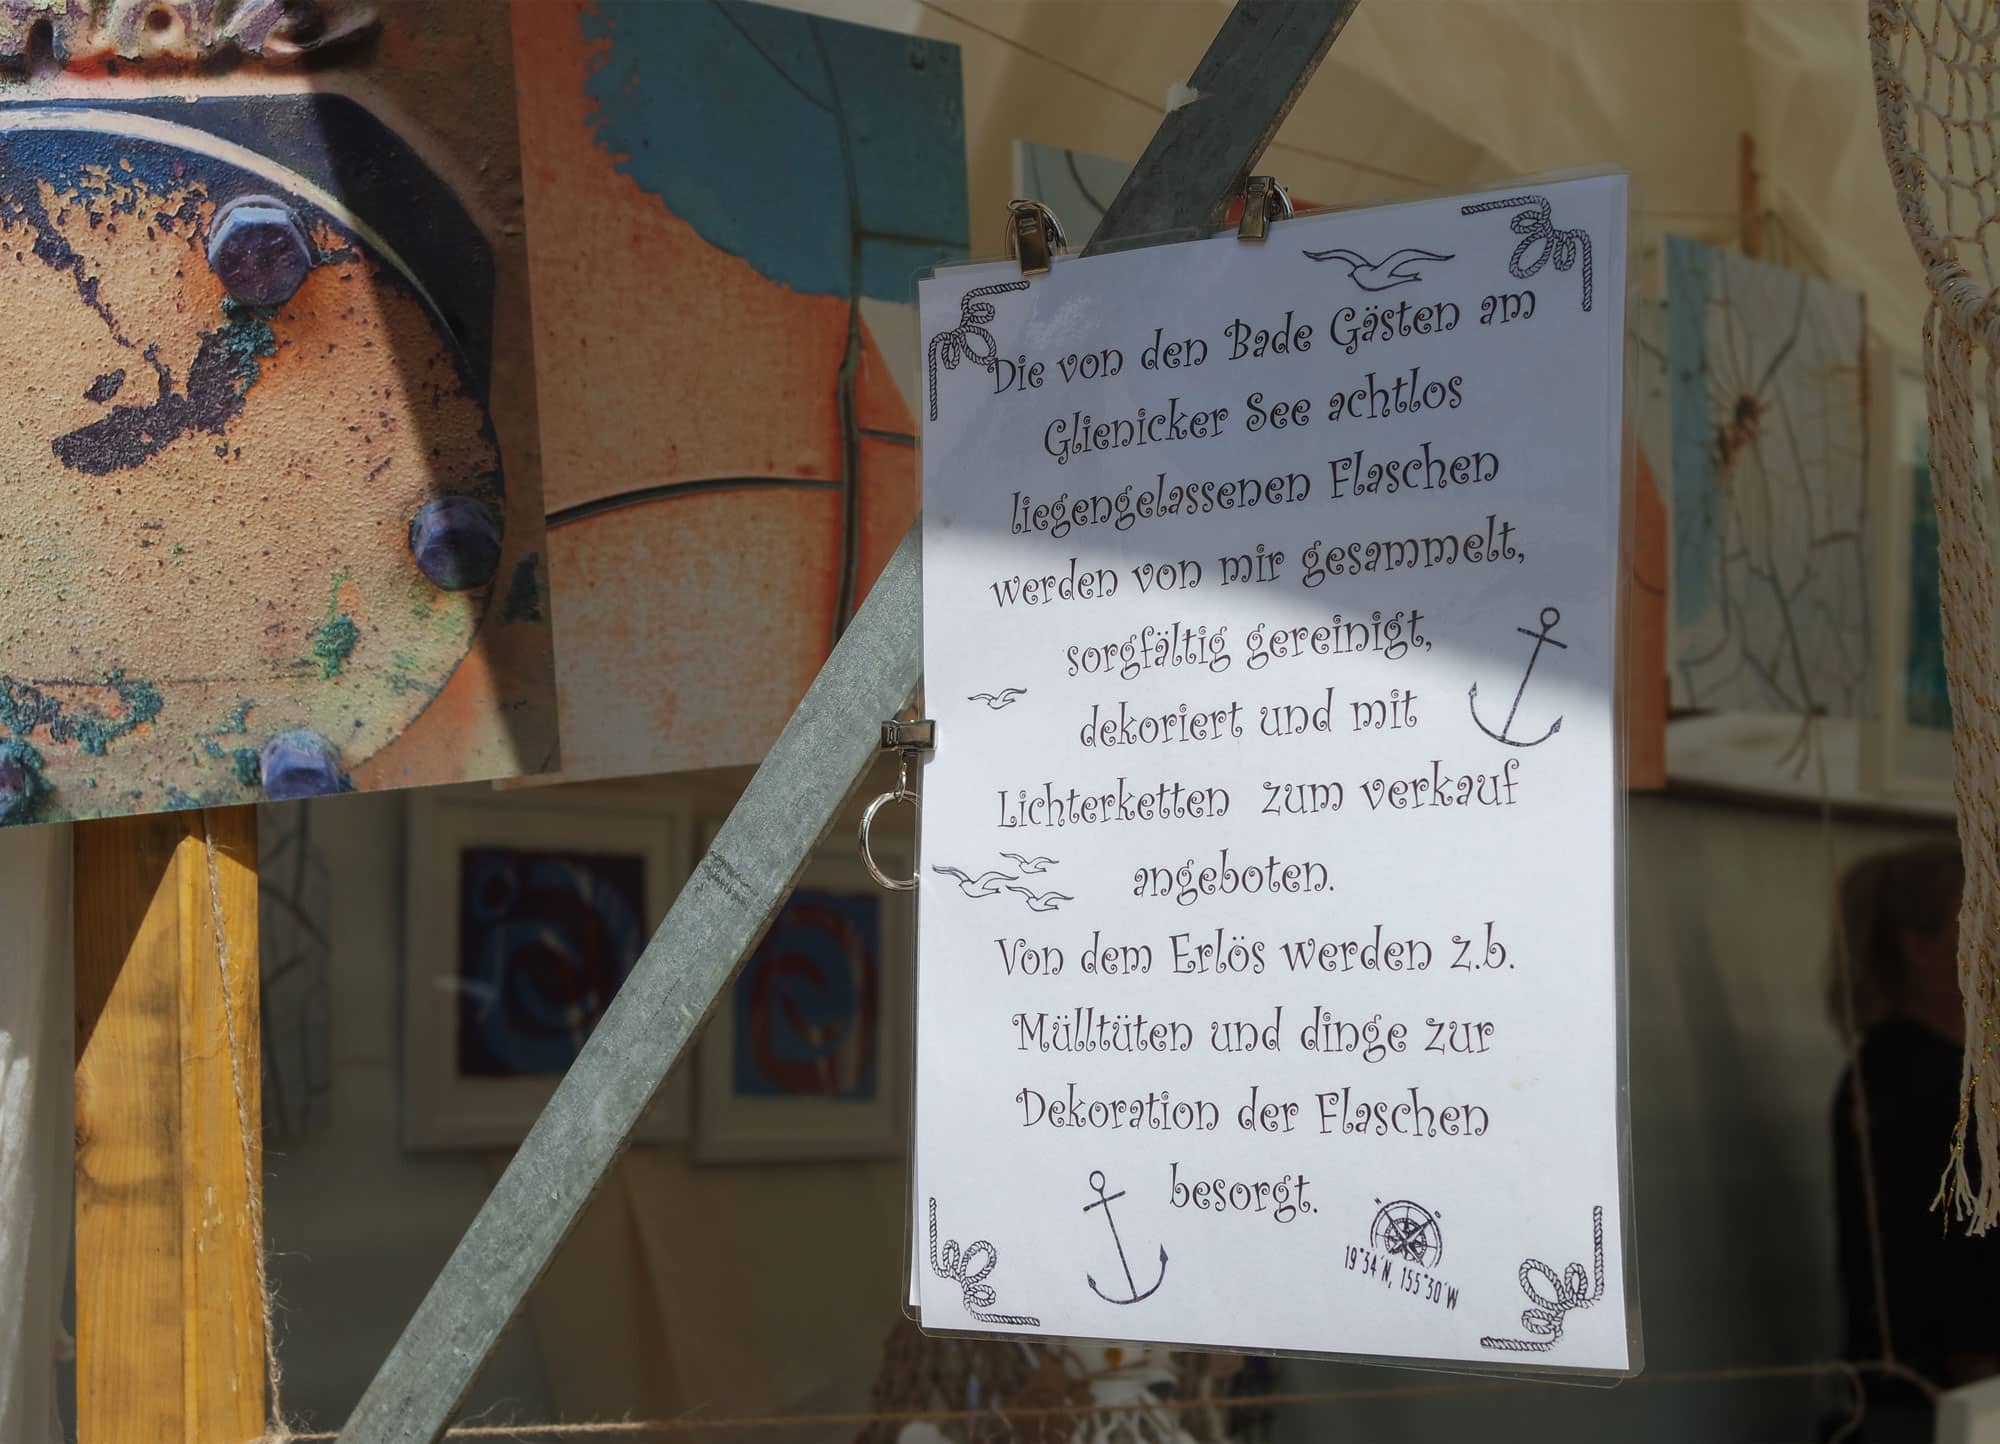 Die von den Bade Gästen am
Glienicker See achtlos
liegengelassenen Flaschen
werden von mir gesammelt,
sorgfältig gereinigt,
dekoriert und mit
Lichterketten zum verkauf
angeboten.
Von dem Erlös werden z.b.
Mülltüten und dinge zur
Dekoration der Flaschen
besorgt.
19°34'N, 155°30'W